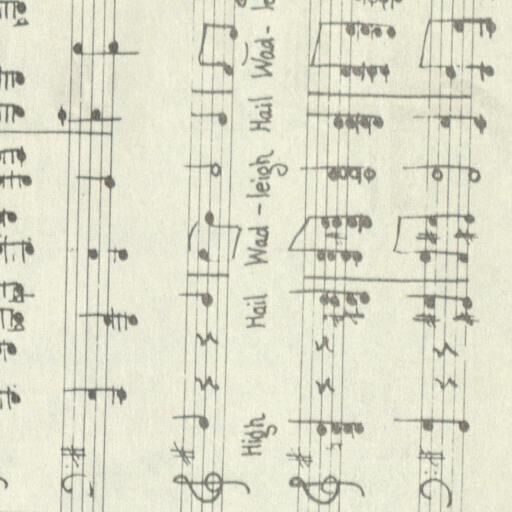 High Hail Wad - leigh Hail Wad - le